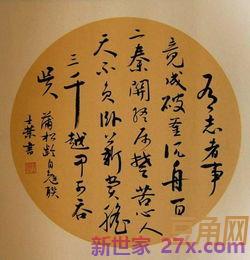 有志者事
竟成破釜沉舟百
二秦関終属楚苦心人
天不負卧薪嘗膽
三千越甲可吞
吳
蒲松齡自勉联
角网
新世家 27x.com